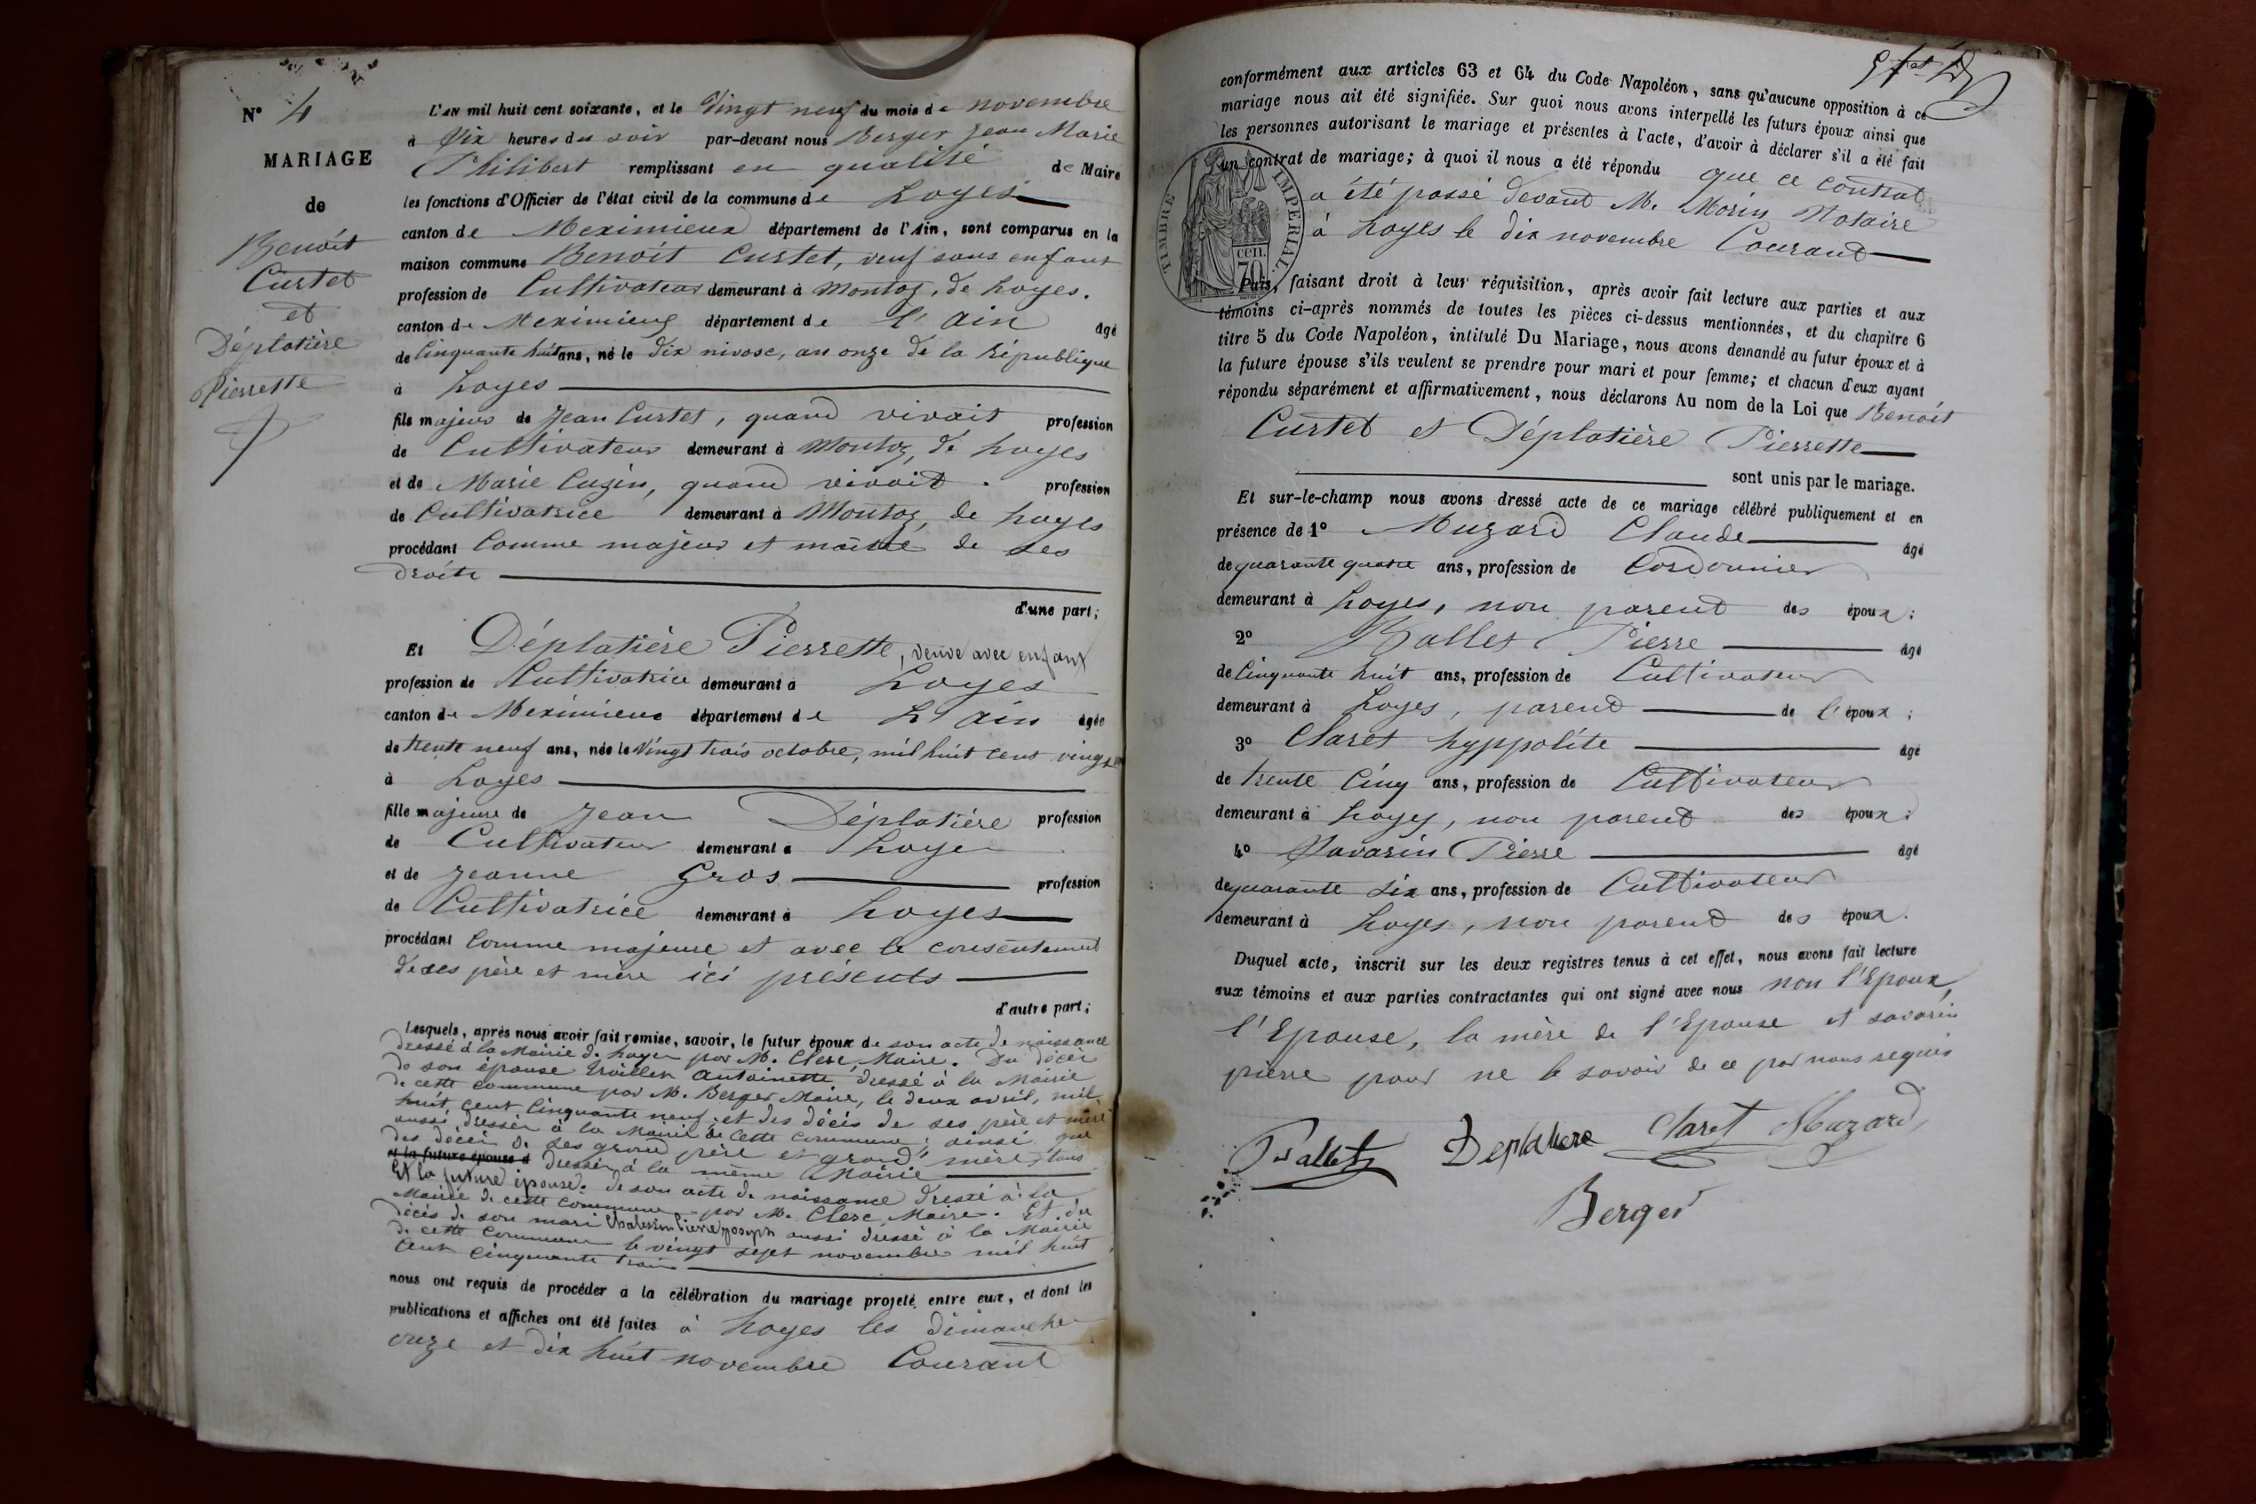 N° 4
MARIAGE
de
Benoît
Curtet
et
Déplatière
Pierrette
L'AN mil huit cent soixante, et le Vingt neuf du mois de novembre
à Six heures du soir par-devant nous Berger Jean Marie
Philibert remplissant en qualité de Maire
les fonctions d'Officier de l'état civil de la commune de Loyes
canton de Meximieux département de l'Ain, sont comparus en la
maison commune Benoît Curtet, veuf sans enfant
profession de Cultivateur demeurant à Montoz, de Loyes.
canton de Meximieux département de L'Ain âgé
de Cinquante huit ans, né le dix nivose, an onze de la République
à Loyes
fils majeur de Jean Curtet, quand vivait profession
de Cultivateur demeurant à Montoz, de Loyes
et de Marie Cugin, quand vivait. profession
de Cultivatrice demeurant à Montoz, de Loyes
procédant Comme majeur et maître de ses
droits
d'une part;
Et Déplatière Pierrette, veuve avec enfant
profession de Cultivatrice demeurant à Loyes
canton de Meximieux département de L'Ain âgée
de trente neuf ans, née le Vingt trois octobre, mil huit cent vingt un
à Loyes
fille majeure de Jean Déplatière profession
de Cultivateur demeurant à Loyes
et de Jeanne Gros profession
de Cultivatrice demeurant à Loyes
procédant Comme majeure et avec le consentement
de ses père et mère ici présents
d'autre part;
Lesquels, après nous avoir fait remise, savoir, le futur époux de son acte de naissance
dressé à la Mairie de Loyes par M. Clerc, Maire. Du décès
de son épouse Antoinette dressé à la Mairie
de cette commune par M. Berger Maire, le deux avril, mil
huit cent cinquante neuf; et des décès de ses père et mère
aussi dressés à la Mairie de cette commune; ainsi que
des décès de ses grand père et grand'mère, tous
et la future épouse d dressés à la même Mairie
Et la future épouse: de son acte de naissance dressé à la
Mairie de cette commune par M. Clerc Maire. Et du
décès de son mari Pierre Joseph aussi dressé à la Mairie
de cette commune le vingt sept novembre mil huit
cent cinquante trois
nous ont requis de procéder à la célébration du mariage projeté entre eux, et dont les
publications et affiches ont été faites à Loyes les dimanches
onze et dix huit novembre Courant
conformément aux articles 63 et 64 du Code Napoléon, sans qu'aucune opposition à ce
mariage nous ait été signifiée. Sur quoi nous avons interpellé les futurs époux ainsi que
les personnes autorisant le mariage et présentes à l'acte, d'avoir à déclarer s'il a été fait
un contrat de mariage; à quoi il nous a été répondu que ce contrat
a été passé devant M. Morin Notaire
à Loyes le dix novembre Courant
TIMBRE IMPERIAL
CEN. 70
Puis, faisant droit à leur réquisition, après avoir fait lecture aux parties et aux
témoins ci-après nommés de toutes les pièces ci-dessus mentionnées, et du chapitre 6
titre 5 du Code Napoléon, intitulé Du Mariage, nous avons demandé au futur époux et à
la future épouse s'ils veulent se prendre pour mari et pour femme; et chacun d'eux ayant
répondu séparément et affirmativement, nous déclarons Au nom de la Loi que Benoît
Curtet et Déplatière Pierrette
sont unis par le mariage.
Et sur-le-champ nous avons dressé acte de ce mariage célébré publiquement et en
présence de 1° Muzard Claude âgé
de quarante quatre ans, profession de Cordonnier
demeurant à Loyes, non parent des époux:
2° Ballet Pierre âgé
de Cinquante huit ans, profession de Cultivateur
demeurant à Loyes, parent de l'époux;
3° Claret hyppolite âgé
de trente Cinq ans, profession de Cultivateur
demeurant à Loyes, non parent des époux:
4° Savarin Pierre âgé
de quarante six ans, profession de Cultivateur
demeurant à Loyes, non parent des époux.
Duquel acte, inscrit sur les deux registres tenus à cet effet, nous avons fait lecture
aux témoins et aux parties contractantes qui ont signé avec nous non l'Epoux,
l'Epouse, la mère de l'Epouse et savarin
pierre pour ne le savoir de ce par nous requis
P. Ballet Deplatiere Claret Muzard
Berger